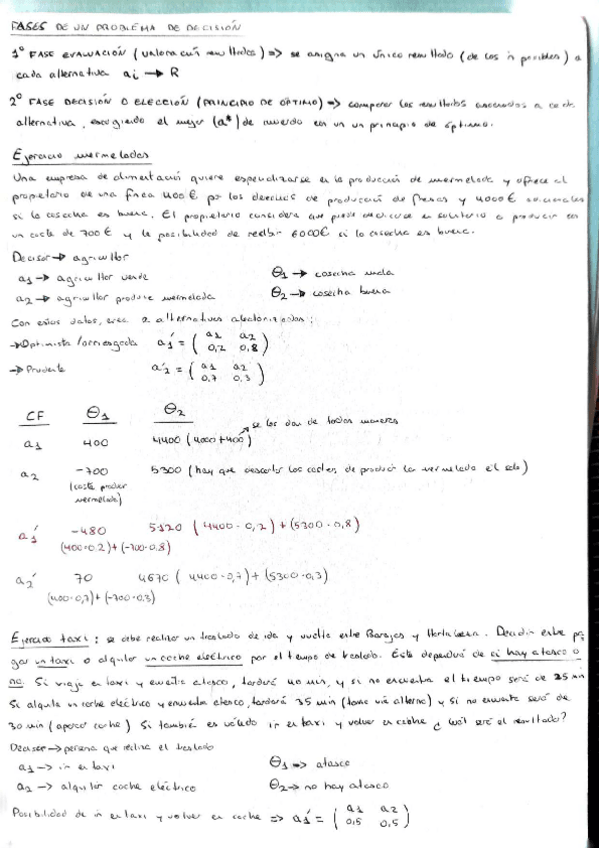 FASES DE UN PROBLEMA DE DECISIÓN
1º FASE EVALUACIÓN (valoración resultados) => se asigna un único resultado (de los n posibles) a
cada alternativa ai → R
2º FASE DECISIÓN O ELECCIÓN (PRINCIPIO DE ÓPTIMO) => comparar los resultados asociados a cada
alternativa, escogiendo el mejor (a*) de acuerdo con un un principio de óptimo.
Ejercicio mermeladas
Una empresa de alimentació quiere especializarse en la producción de mermelada y ofrece al
propietario de una finca 400€ por los derechos de producción de fresas y 4000€ adicionales
si la cosecha es buena. El propietario considera que puede en solitario a producir con
un coste de 700€ y la posibilidad de recibir 6000€ si la cosecha es buena.
Decisor → agricultor
a1 → agricultor vende θ1 → cosecha mala
a2 → agricultor produce mermelada θ2 → cosecha buena
Con estos datos, crea 2 alternativas aleatorizadas:
→ Optimista /arriesgada a1' = ( a1 a2
0,2 0,8 )
→ Prudente a2' = ( a1 a2
0,7 0,3 )
CF θ1 θ2
se los dan de todas maneras
a1 400 4400 (4000+400)
a2 -700 5300 (hay que descontar los costes de producir la mermelada él solo)
(coste producir
mermelada)
a1' -480 5120 (4400·0,2)+(5300·0,8)
(400·0,2)+(-700·0,8)
a2' 70 4670 (4400·0,7)+(5300·0,3)
(400·0,7)+(-700·0,3)
Ejercicio taxi: se debe realizar un traslado de ida y vuelta entre Barajas y Hortaleza. Decidir entre pa
gar un taxi o alquilar un coche eléctrico por el tiempo de traslado. Éste dependerá de si hay atasco o
no. Si viaja en taxi y encuentra atasco, tardará 40 min, y si no encuentra el tiempo será de 25 min
Si alquila un coche eléctrico y encuentra atasco, tardará 35 min (tome vía alterna) y si no encuentra será de
30 min (aparcar coche) Si también es válido ir en taxi y volver en coche ¿ cuál será el resultado?
Decisor → persona que realiza el traslado
a1 → ir en taxi θ1 → atasco
a2 → alquilar coche eléctrico θ2 → no hay atasco
Posibilidad de ir en taxi y volver en coche => a1' = ( a1 a2
0,5 0,5 )